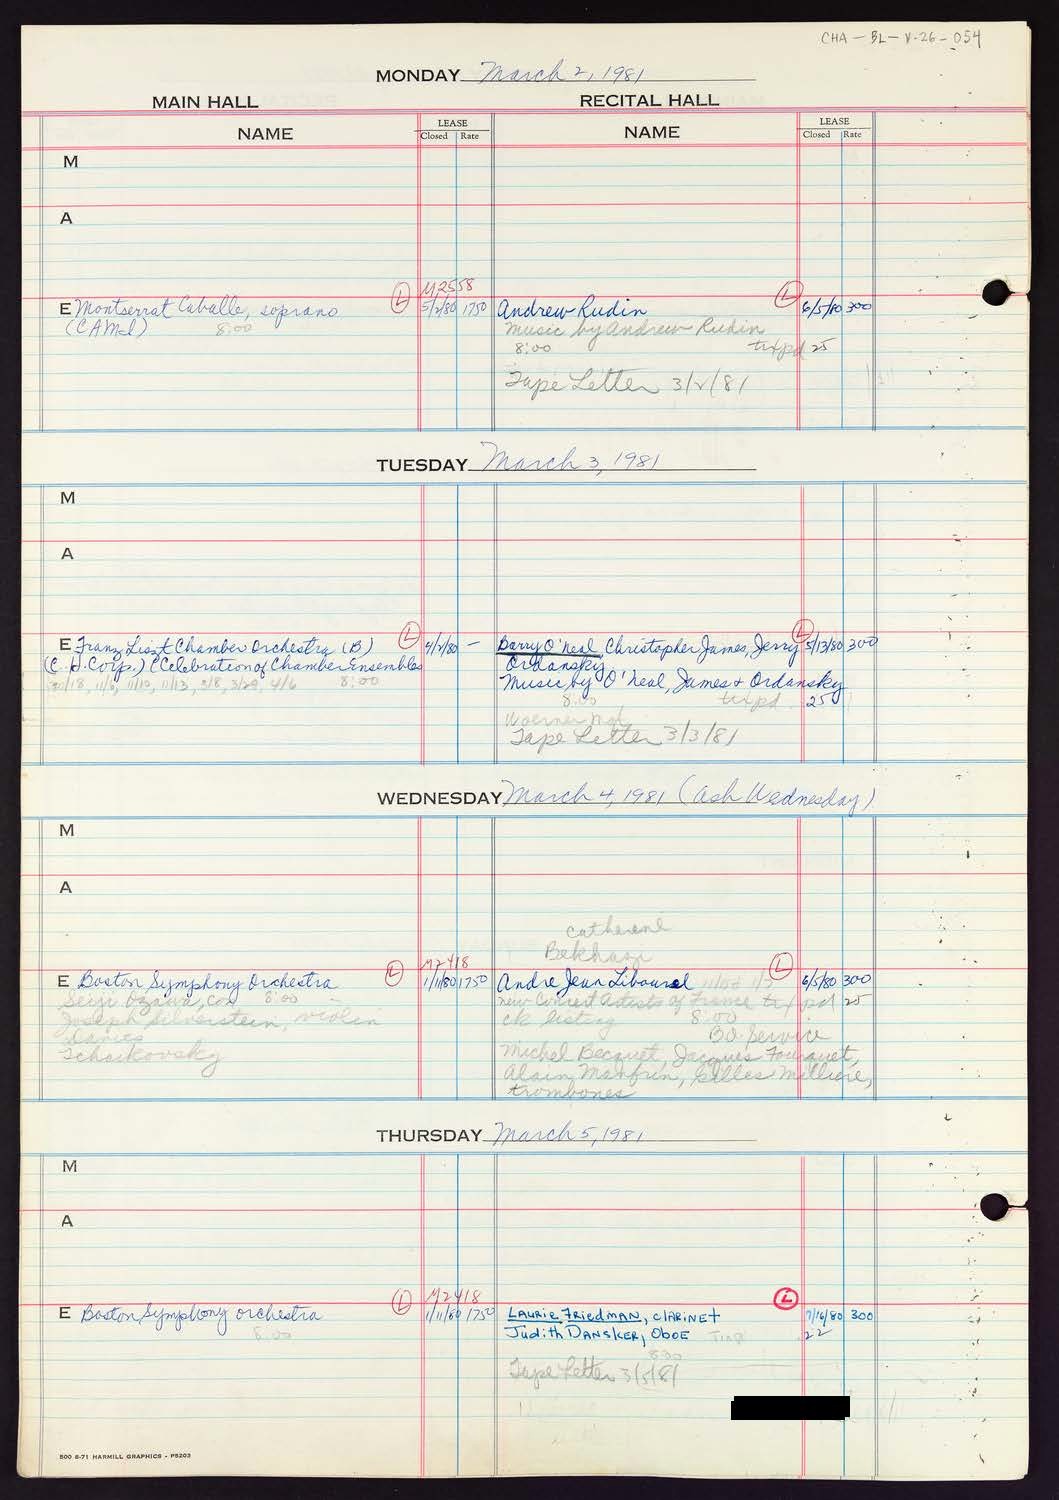 CHA - BL - V-26 - 054
MONDAY March 2, 1981
MAIN HALL
RECITAL HALL
NAME
LEASE
Closed Rate
NAME
LEASE
Closed Rate
M
A
M2558
E Montserrat Caballe, soprano (L) 5/2/80 1750
(CAMI) 8:00
Andrew Rudin (L) 6/5/80 300
Music by Andrew Rudin
8:00 txpd 25
Tape Letter 3/2/81
TUESDAY March 3, 1981
M
A
E Franz Liszt Chamber Orchestra (B) (L) 4/2/80 -
(C.H. Corp.) (Celebration of Chamber Ensembles
11/10, 11/13, 3/8, 3/29, 4/6 8:00
Barry O'Neal, Christopher James, Jerry (L) 5/13/80 300
Ordansky
Music by O'Neal, James + Ordansky
8:00 txpd 25
Tape Letter 3/3/81
WEDNESDAY March 4, 1981 (Ash Wednesday)
M
A
M2418
E Boston Symphony Orchestra (L) 1/11/80 1750
Seiji Ozawa, con 8:00
Joseph Silverstein, violin
Davies
Tchaikovsky
Catherine
Andre Jean Libourel (L) 6/5/80 300
New Concert Artists of France tx pd 25
ck listing 8:00
BO Service
Michel Becquet, Jacques Fourquet,
Alain Manfrin, Gilles Milliere,
trombones
THURSDAY March 5, 1981
M
A
M2418
E Boston Symphony Orchestra (L) 1/11/80 1750
8:00
LAURIE FRIEDMAN, CLARINET (L) 7/16/80 300
Judith DANSKER, OBOE 22
8:30
Tape Letter 3/5/81
500 6-71 HARMILL GRAPHICS - P5203